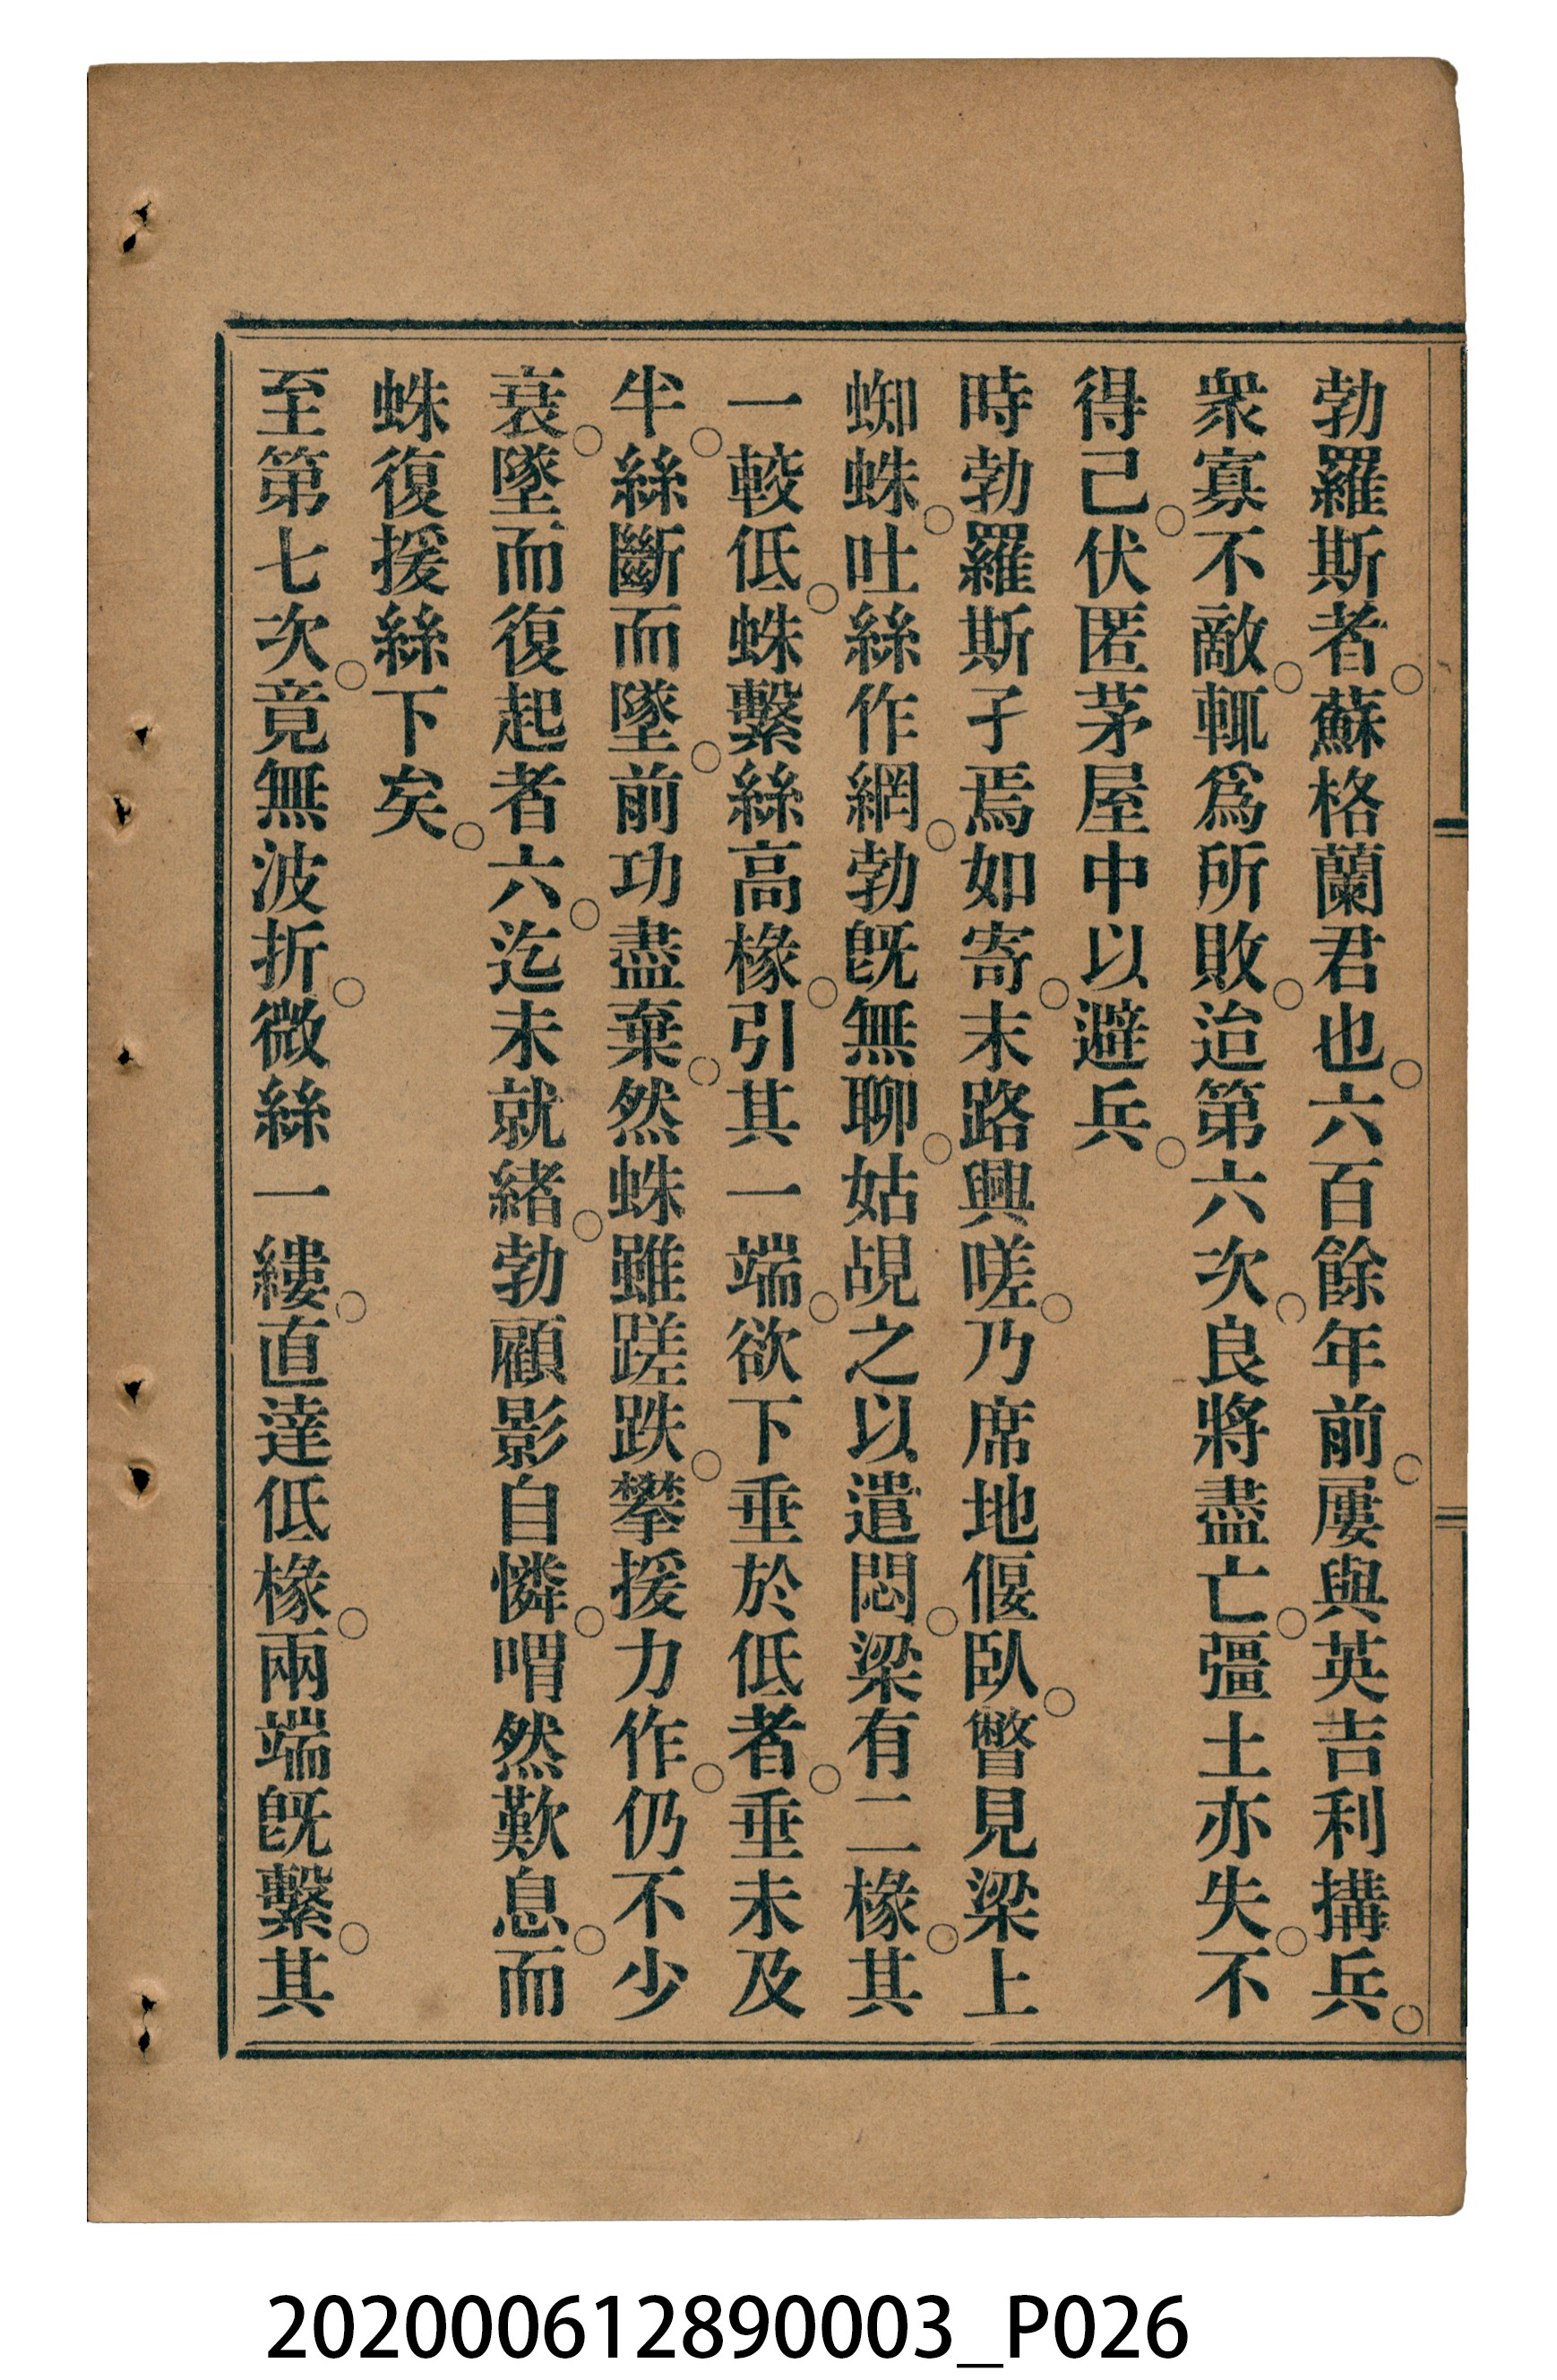 勃羅斯者。蘇格蘭君也。六百餘年前。屢與英吉利搆兵。
衆寡不敵。輒爲所敗。迨第六次。良將盡亡。彊土亦失。不
得已。伏匿茅屋中以避兵。
時勃羅斯孑焉如寄。末路興嗟。乃席地偃臥。瞥見梁上
蜘蛛。吐絲作網。勃旣無聊。姑覘之以遣悶。梁有二椽。其
一較低。蛛繫絲高椽。引其一端。欲下垂於低者。垂未及
半。絲斷而墜。前功盡棄。然蛛雖蹉跌。攀援力作。仍不少
衰。墜而復起者六。迄未就緒。勃顧影自憐。喟然歎息。而
蛛復援絲下矣。
至第七次。竟無波折。微絲一縷。直達低椽。兩端旣繫。其
202000612890003_P026